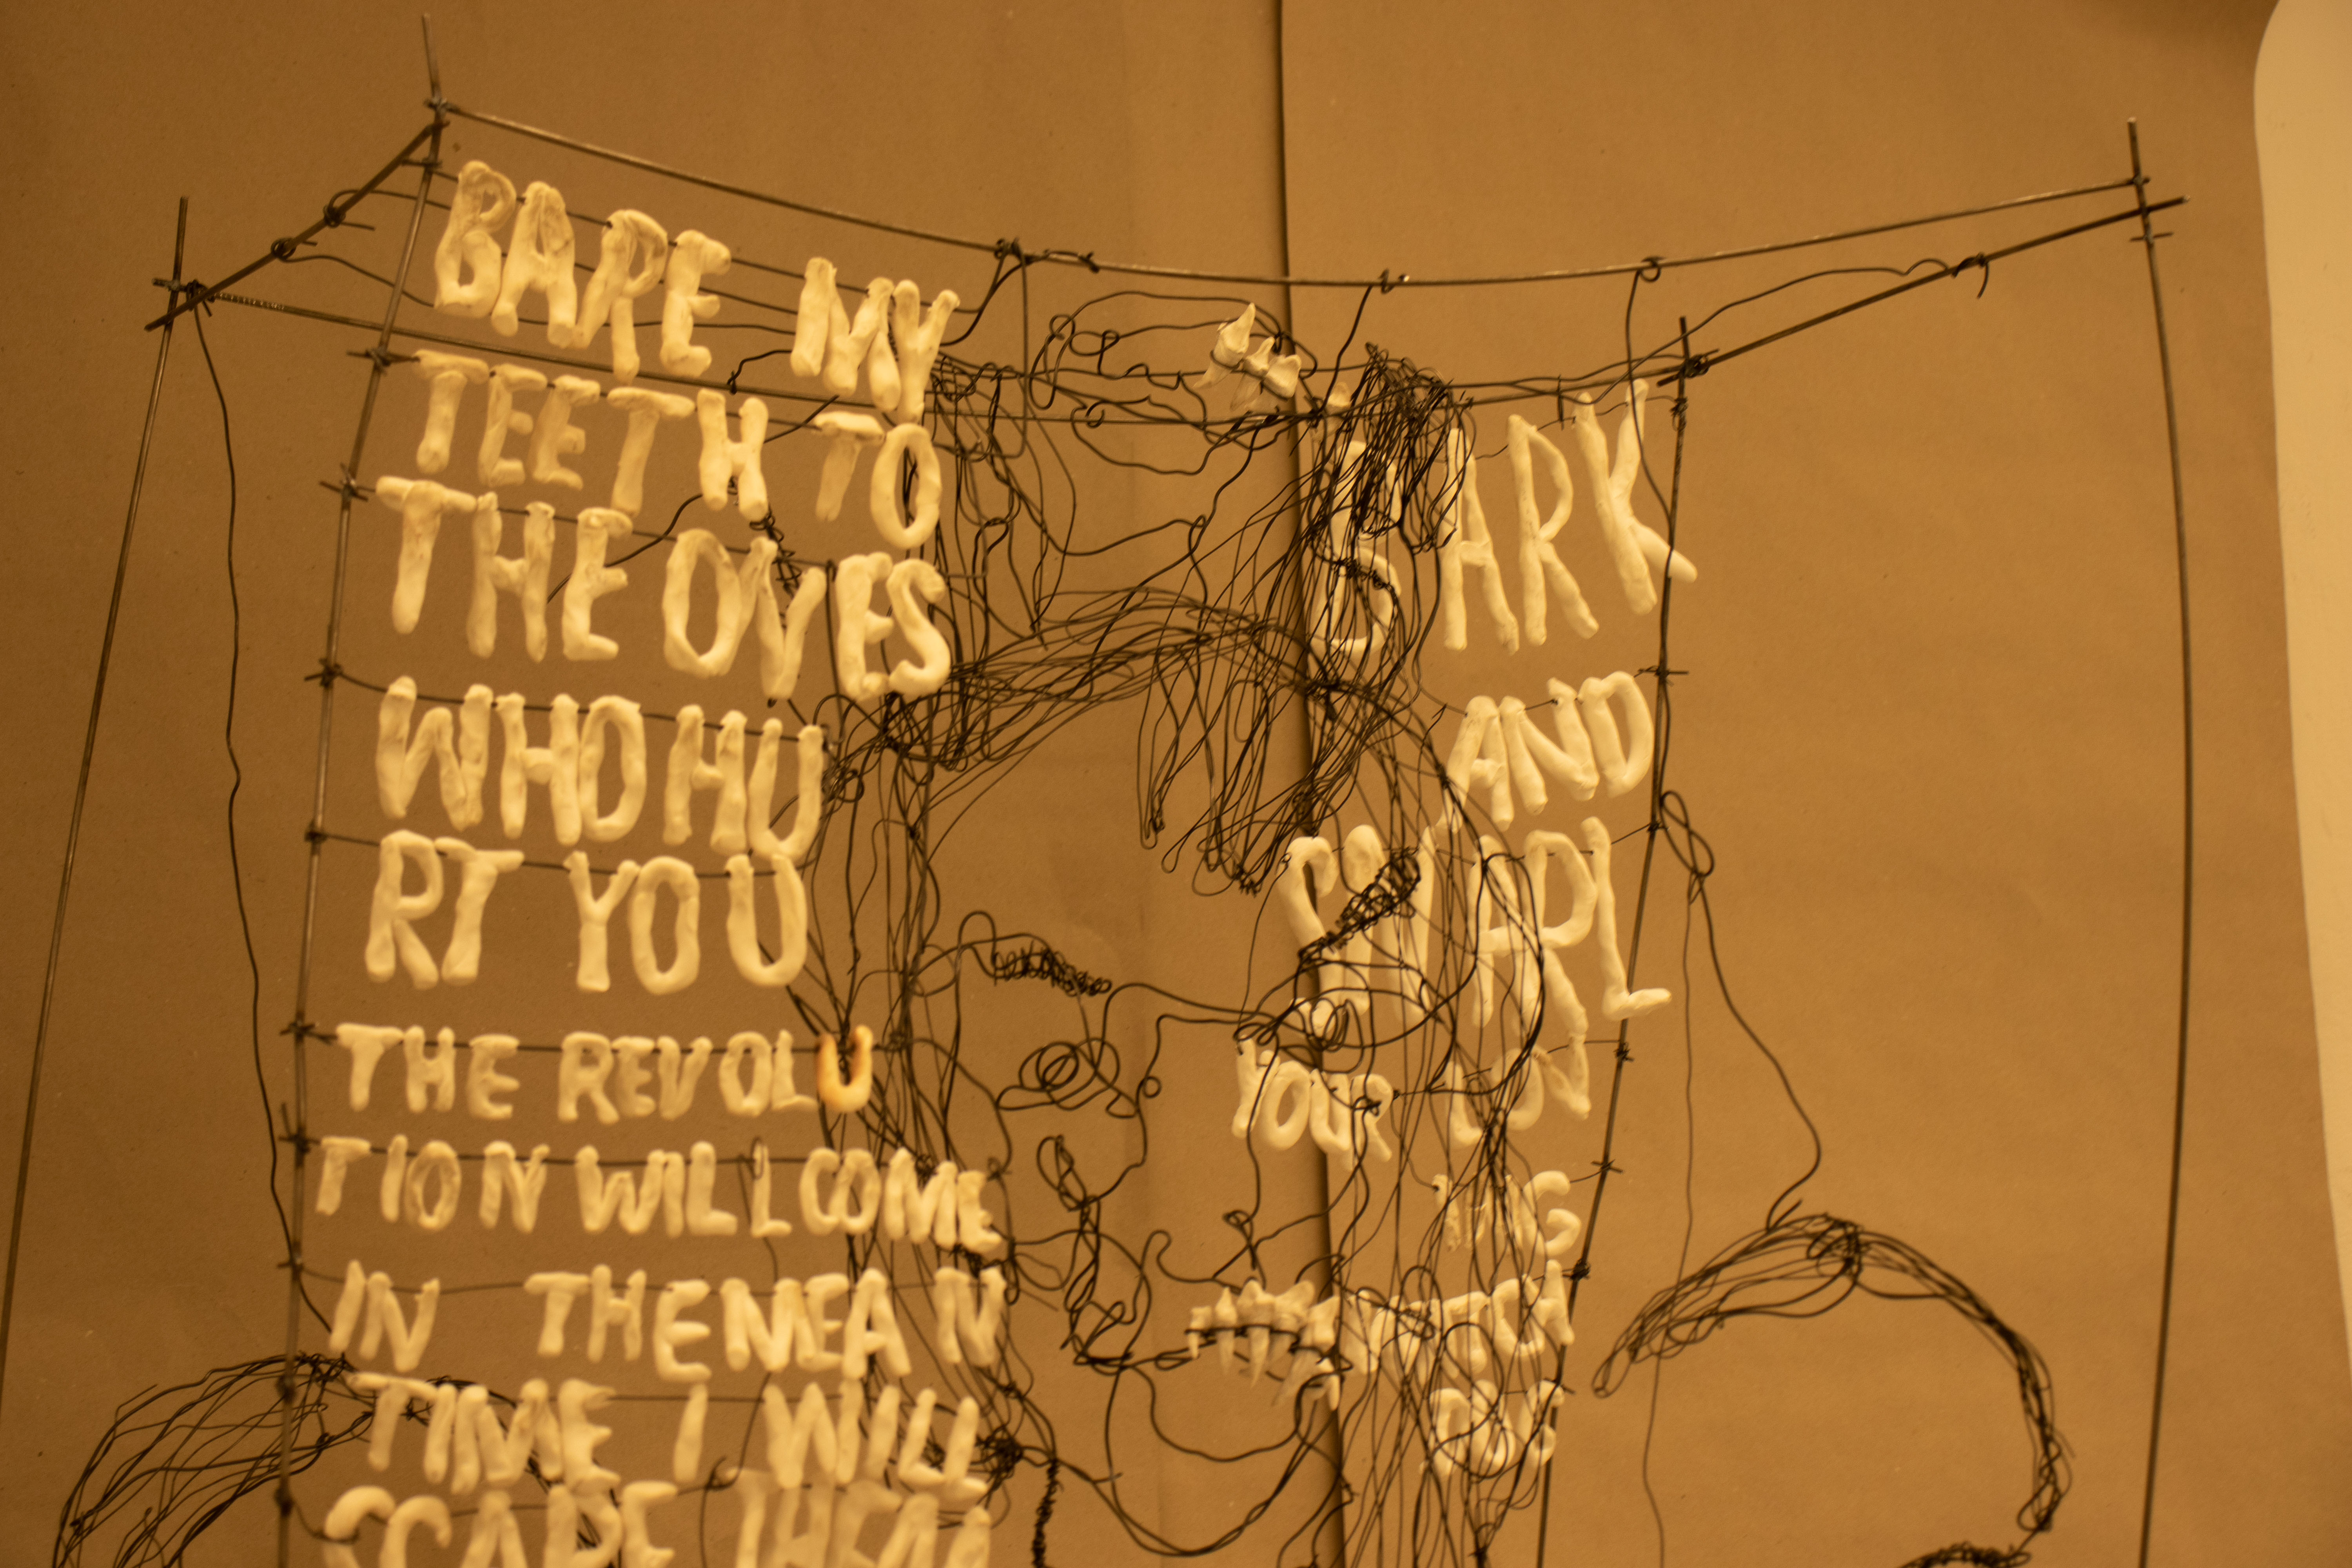 BARE MY
TEETH TO
THE ONES
WHO HU
RT YOU
THE REVOLU
TION WILL COME
IN THE MEAN
TIME I WILL
SCARE THEM
BARK
AND
SNARL
YOUR LON
ING